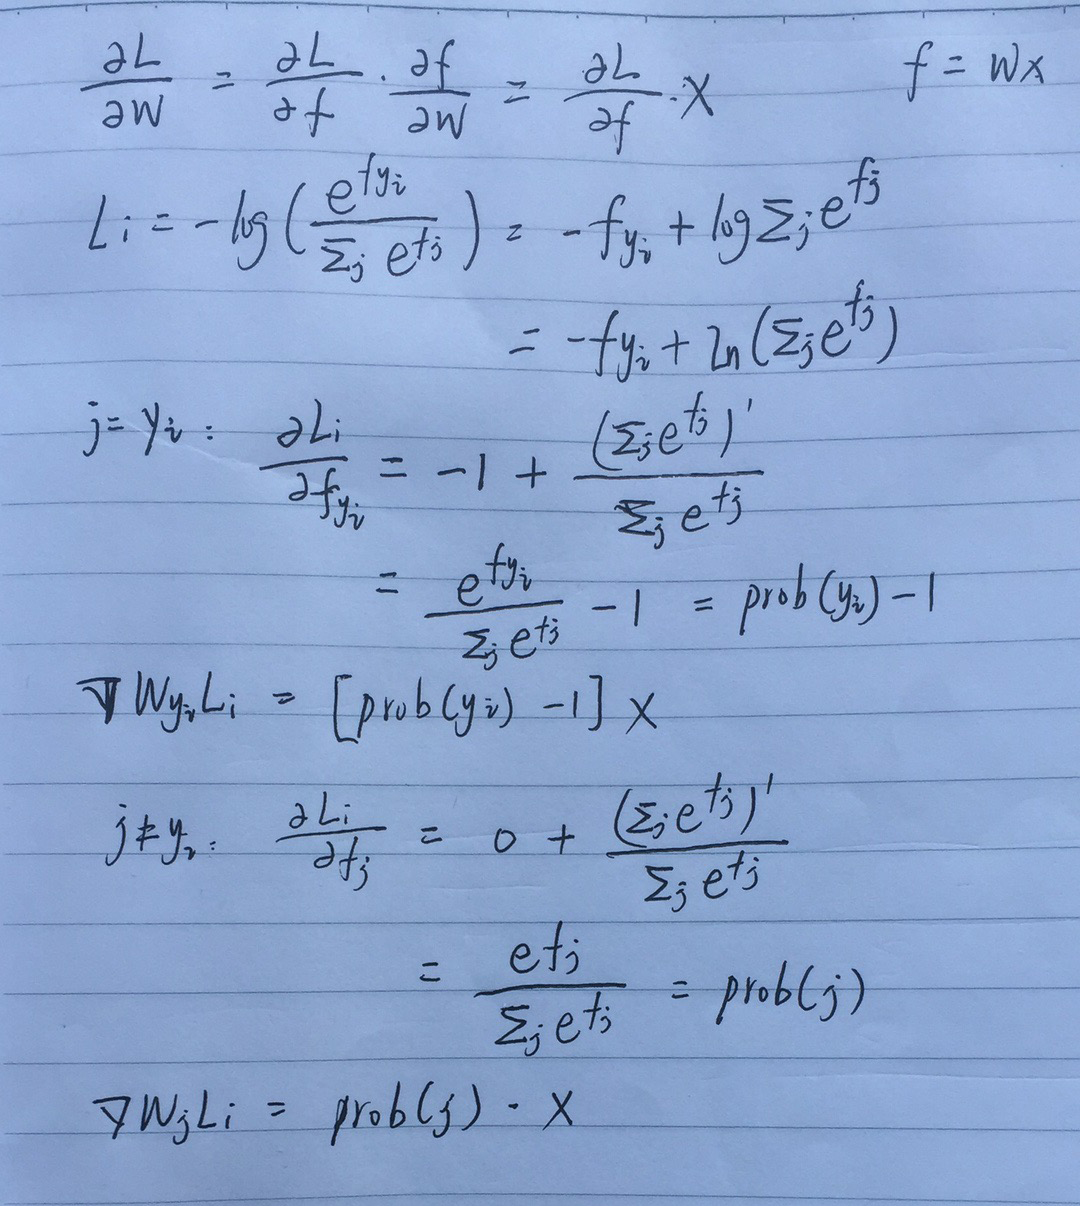 ∂L/∂W = ∂L/∂f · ∂f/∂W = ∂L/∂f · X    f = Wx
Li = -log(e^{f_{y_i}} / Σ_j e^{f_j}) = -f_{y_i} + log Σ_j e^{f_j}
= -f_{y_i} + ln(Σ_j e^{f_j})
j = y_i : ∂Li/∂f_{y_i} = -1 + (Σ_j e^{f_j})' / Σ_j e^{f_j}
= e^{f_{y_i}} / Σ_j e^{f_j} - 1 = prob(y_i) - 1
∇W_{y_i}Li = [prob(y_i) - 1] X
j ≠ y_i : ∂Li/∂f_j = 0 + (Σ_j e^{f_j})' / Σ_j e^{f_j}
= e^{f_j} / Σ_j e^{f_j} = prob(j)
∇W_jLi = prob(j) · X